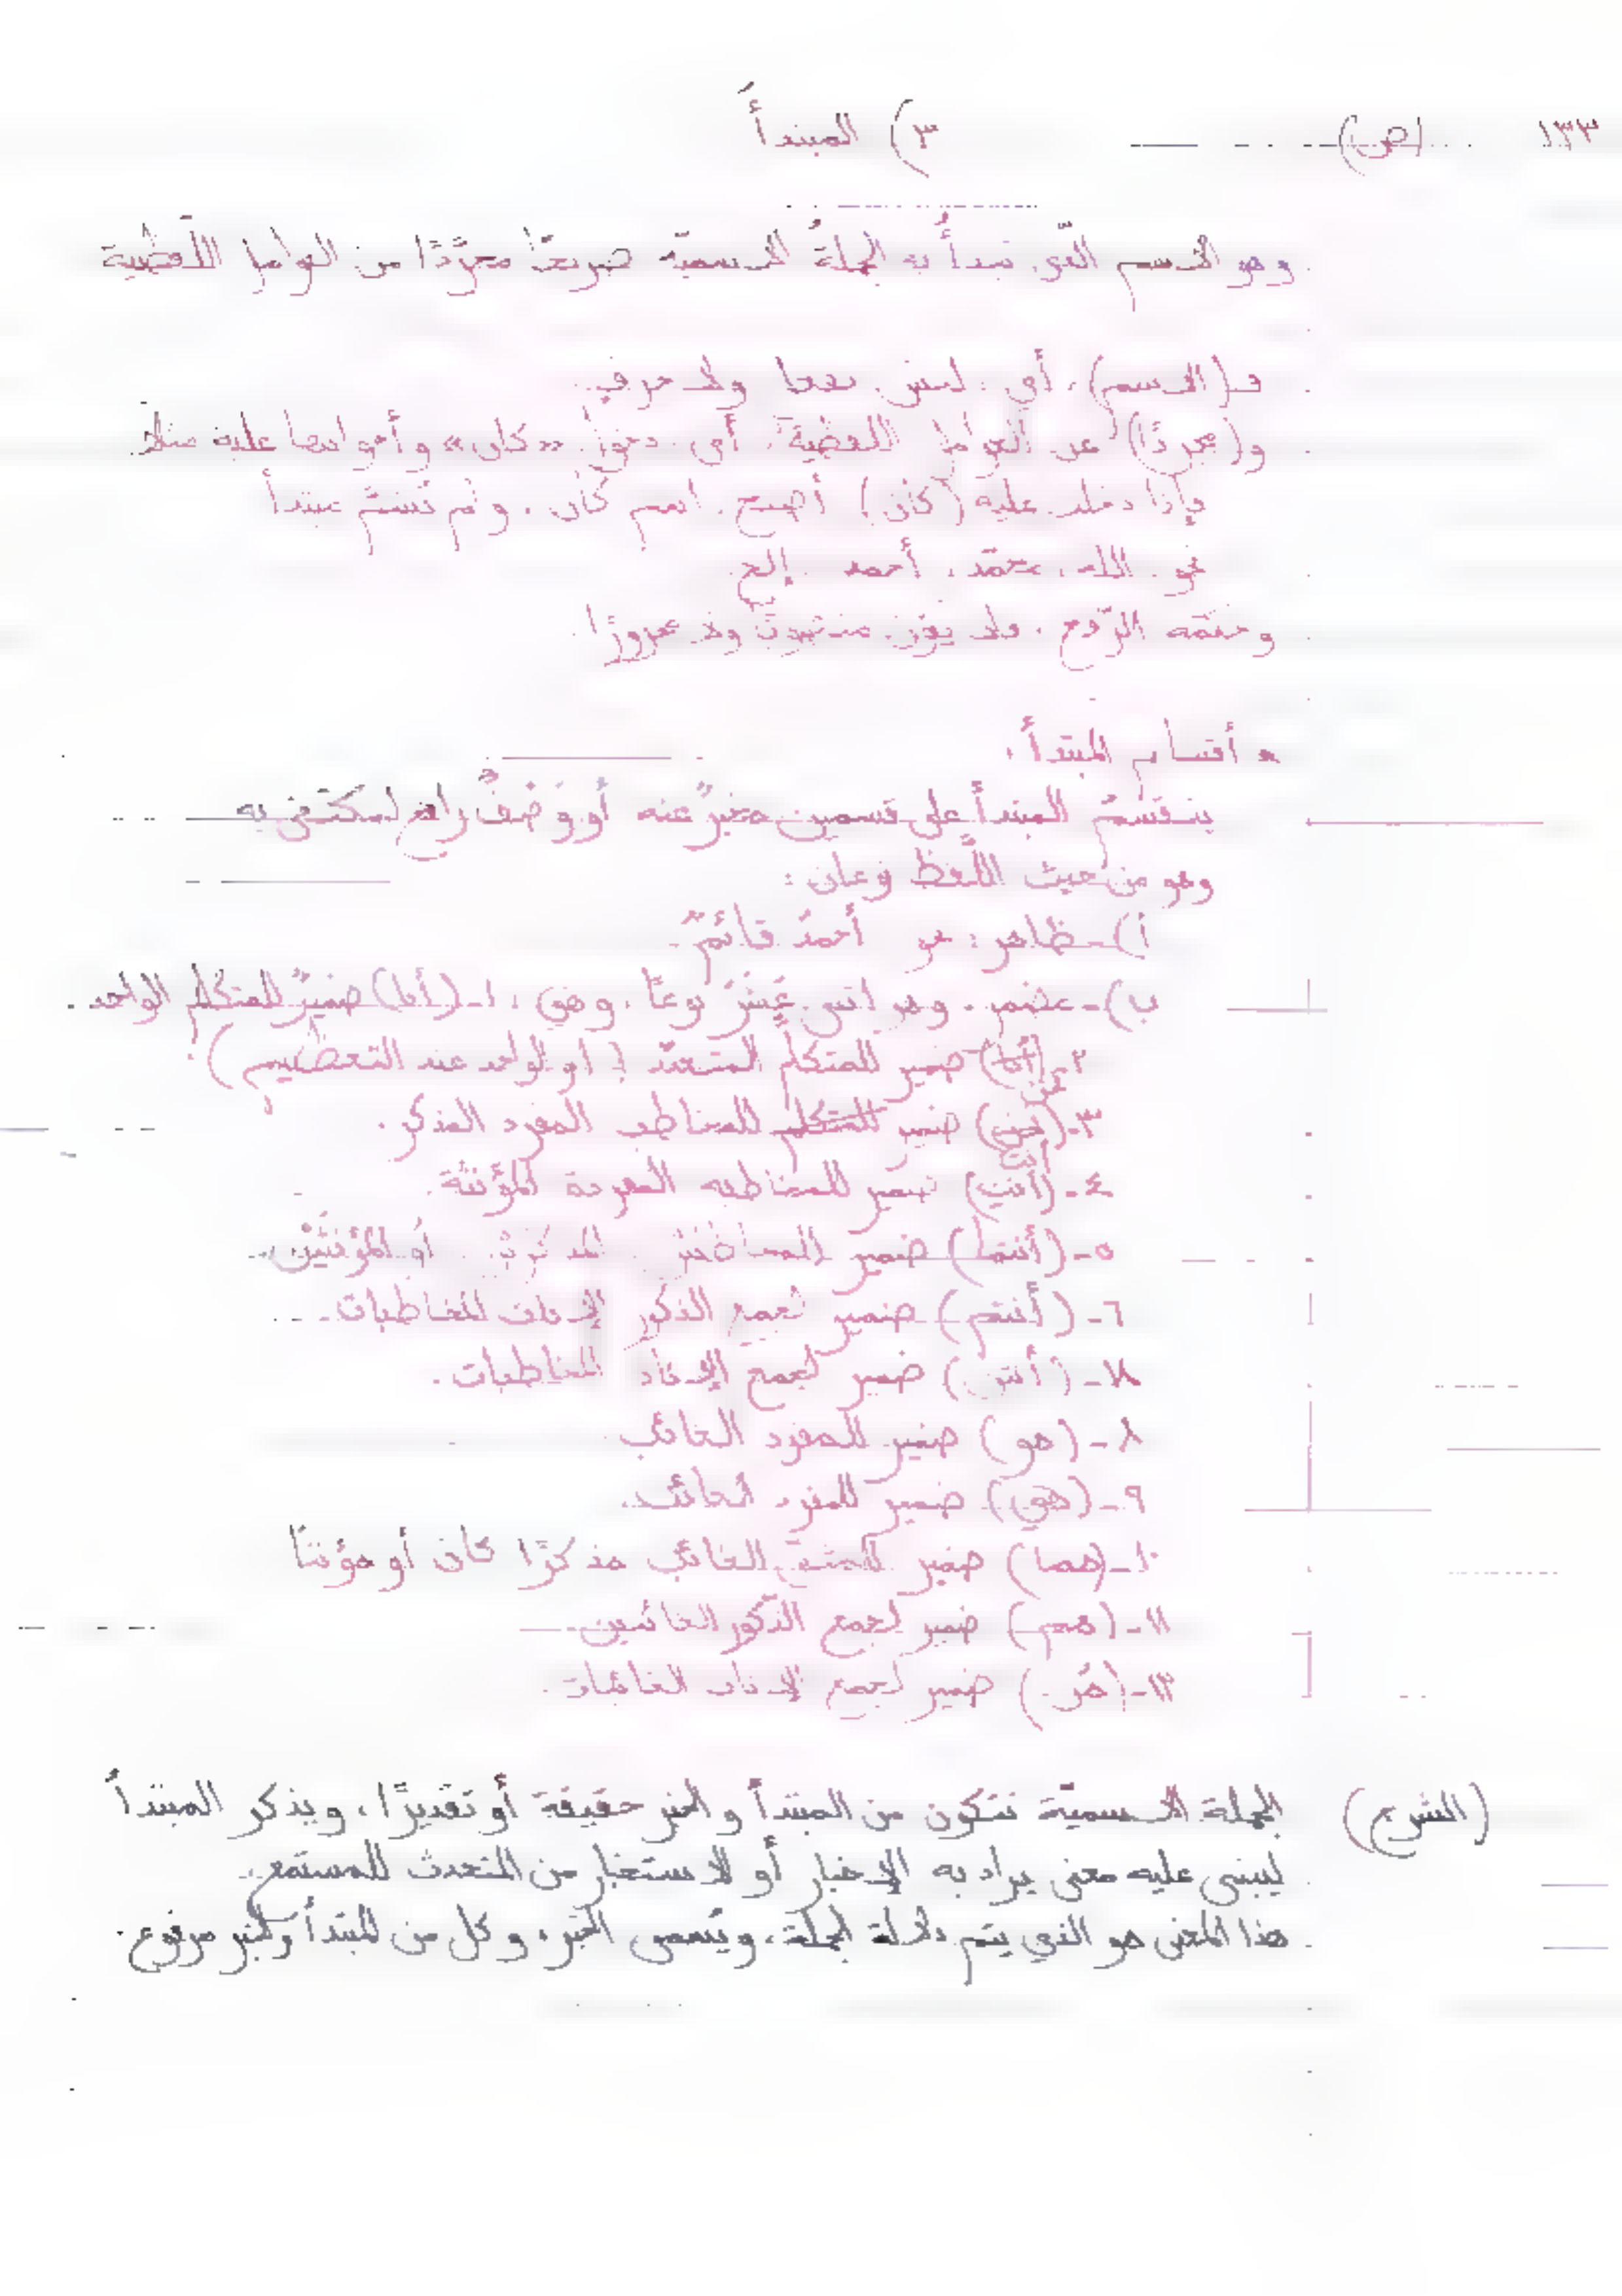 ١٣٣ (ص) ٣) المبتدأ
وهو الاسم الّذي نبدأ به الجملةُ الاسميّة صريحًا مجرّدًا من العوامل اللّفظية
فـ(الاسم)، أي: ليس فعلا ولا حرف.
و(مجردًا) عن العوامل اللفظية، أي دخول «كان» وأخواتها عليه مثلا.
فإذا دخلت عليه (كان) أصبح اسم كان، ولم تسمّ مبتدأ
نحو الله، محمّد، أحمد إلخ.
وحكمه الرّفع، ولا يكون منصوبًا ولا مجرورًا.
* أقسام المبتدأ:
ينقسمُ المبتدأ على قسمين مخبرٌ عنه أو وَصْفٌ رافع لمكتفى به
وهو من حيث اللّفظ نوعان:
أ)ـ ظاهر: نحو أحمدُ قائمٌ.
ب)ـ مضمر، وهو اثنى عَشَرَ نوعًا، وهي: ١ـ (أنا) ضميرٌ للمتكلم الواحد.
٢ـ (نحن) ضمير للمتكلم المتعدّد (أو الواحد عند التعظيم).
٣ـ (أنت) ضمير للمخاطب المفرد المذكر.
٤ـ (أنتِ) ضمير للمخاطبة المفردة المؤنثة.
٥ـ (أنتما) ضمير المخاطبَيْن المذكرين أو المؤنثَيْن.
٦ـ (أنتم) ضمير لجمع الذكور الإناث للمخاطبات.
٧ـ (أنتن) ضمير لجمع الإناث المخاطبات.
٨ـ (هو) ضمير للمفرد الغائب
٩ـ (هي) ضمير للمفرد الغائب.
١٠ـ (هما) ضمير للمثنّى الغائب مذكرًا كان أو مؤنثًا
١١ـ (هم) ضمير لجمع الذّكور الغائبين.
١٢ـ (هُن) ضمير لجمع الإناث الغائبات.
(الشرح) الجملة الاسميّة تتكون من المبتدأ والخبر حقيقة أو تقديرًا، ويذكر المبتدأ
ليبنى عليه معنى يراد به الإخبار أو الاستخبار من المتحدث للمستمع،
هذا المعنى هو الذي يتم دلالة الجملة، ويُسمى الخبر، وكل من المبتدأ والخبر مرفوع.